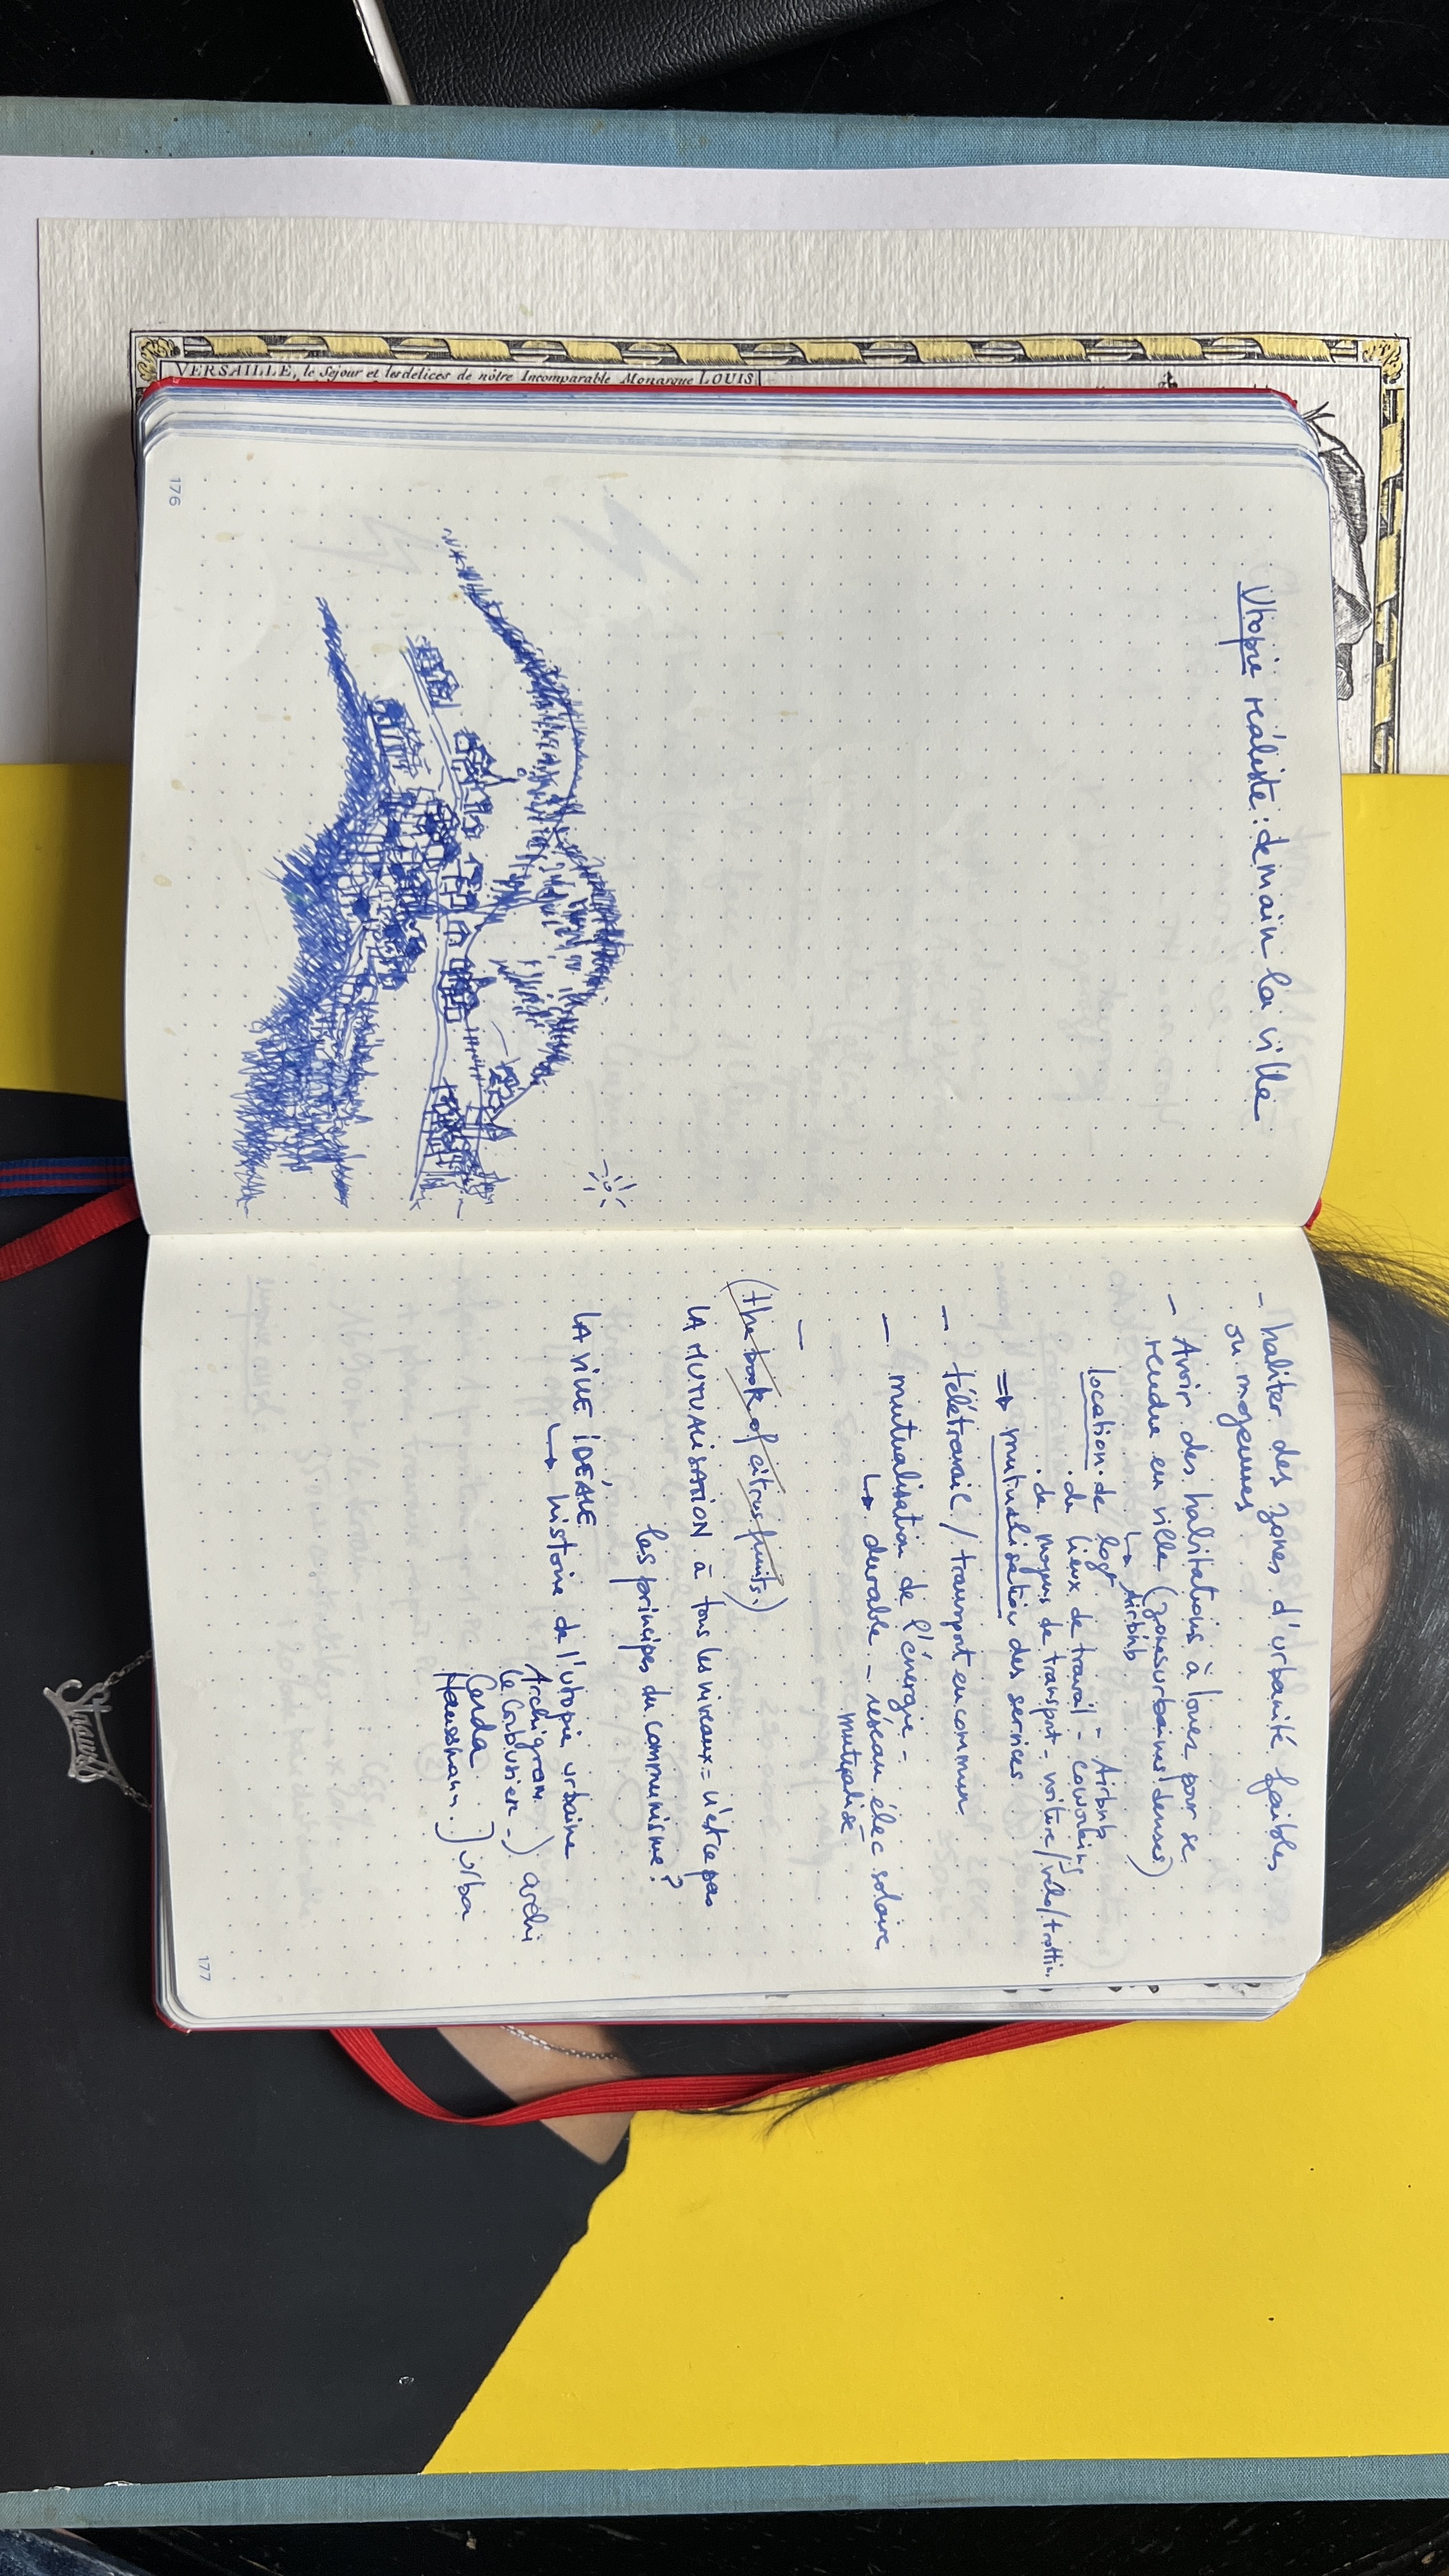 VERSAILLE, le Sejour et les delices de nôtre Incomparable Monarque LOUIS
Utopie réaliste : demain la ville
176
- habiter des zones d'urbanité faibles
ou moyennes
- Avoir des habitations à louer pour se
rendre en ville (zones urbaines denses)
↳ Airbnb
location . de logt - Airbnb
. de lieux de travail - coworking
. de moyens de transport - voiture/vélo/trottin.
⇒ mutualisation des services
- télétravail / transport en commun
- mutualisation de l'énergie -
↳ durable - réseau élec solaire
mutualisé
-
(the book of citrus fruits.)
LA MUTUALISATION à tous les niveaux = n'est ce pas
les principes du communisme ?
LA VILLE IDÉALE
↳ histoire de l'utopie urbaine
Archigram ) archi
Le Corbusier -
Cerda ] urba
Haussmann.
177